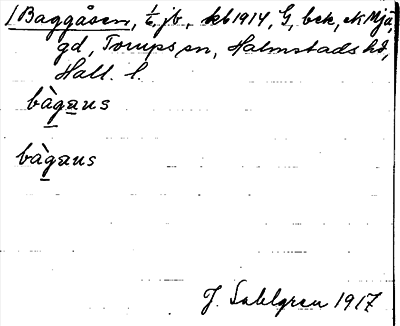 /Baggåsen, ½ jb, kb 1914, G, bek, ek Mjä,
gd, Torups sn, Halmstads hd,
Hall. l.
bàgaus
bàgaus
J. Sahlgren 1917